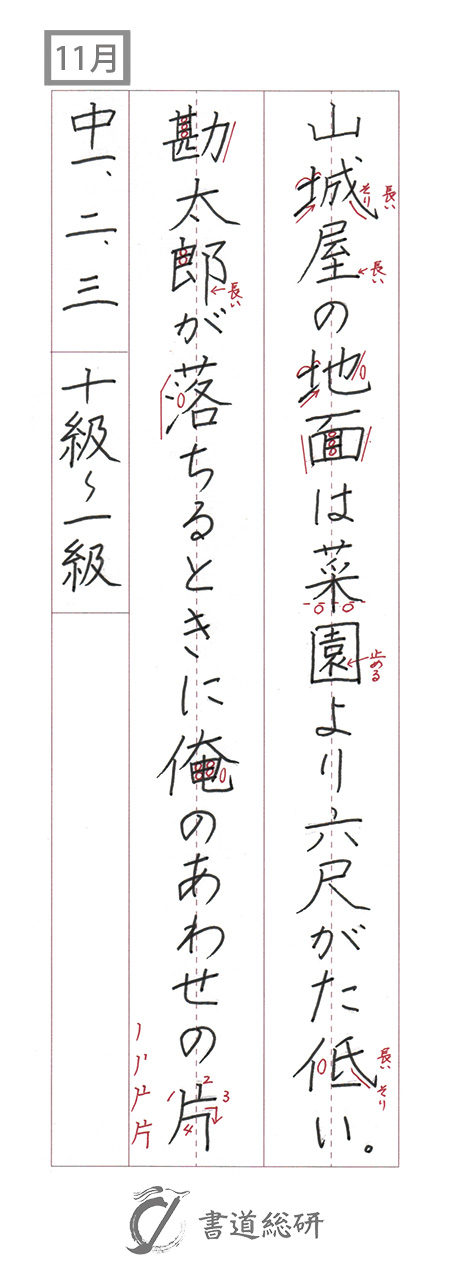 11月
山城屋の地面は菜園より六尺がた低い。
長い
そり
長い
止める
長い
そり
勘太郎が落ちるときに俺のあわせの片
長い
1 2 3 4
片
中一、二、三
十級〜一級
書道総研